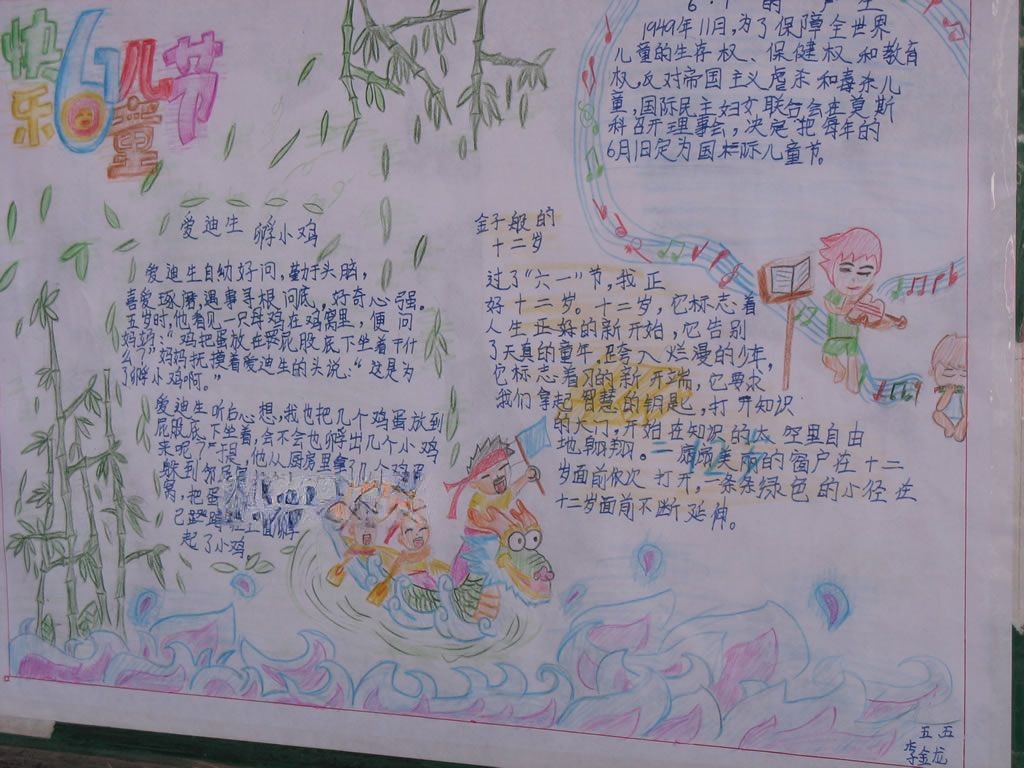 快乐61儿童节
6·1的产生
1949年11月,为了保障全世界
儿童的生存权、保健权和教育
权,反对帝国主义虐杀和毒杀儿
童,国际民主妇女联合会在莫斯
科召开理事会,决定把每年的
6月1日定为国际儿童节。
爱迪生孵小鸡
爱迪生自幼好问,勤于头脑,
喜爱琢磨,遇事寻根问底,好奇心强。
五岁时,他看见一只母鸡在鸡窝里,便问
妈妈:“鸡把蛋放在屁股底下坐着干什
么?”妈妈抚摸着爱迪生的头说:“这是为
了孵小鸡啊。”
爱迪生听后心想,我也把几个鸡蛋放到
屁股底下坐着,会不会也孵出几个小鸡
来呢?于是,他从厨房里拿了几个鸡蛋
躲到邻居
窝,把蛋
己蹲
上面孵
起了小鸡.
金子般的
十二岁
过了“六一”节,我正
好十二岁。十二岁,它标志着
人生正好的新开始,它告别
了天真的童年,跨入烂漫的少年,
它标志着的新开端,它要求
我们拿起智慧的钥匙,打开知识
的大门,开始在知识的太空里自由
地翱翔。一扇扇美丽的窗户在十二
岁面前依次打开,一条条绿色的小径在
十二岁面前不断延伸。
五五
李金龙